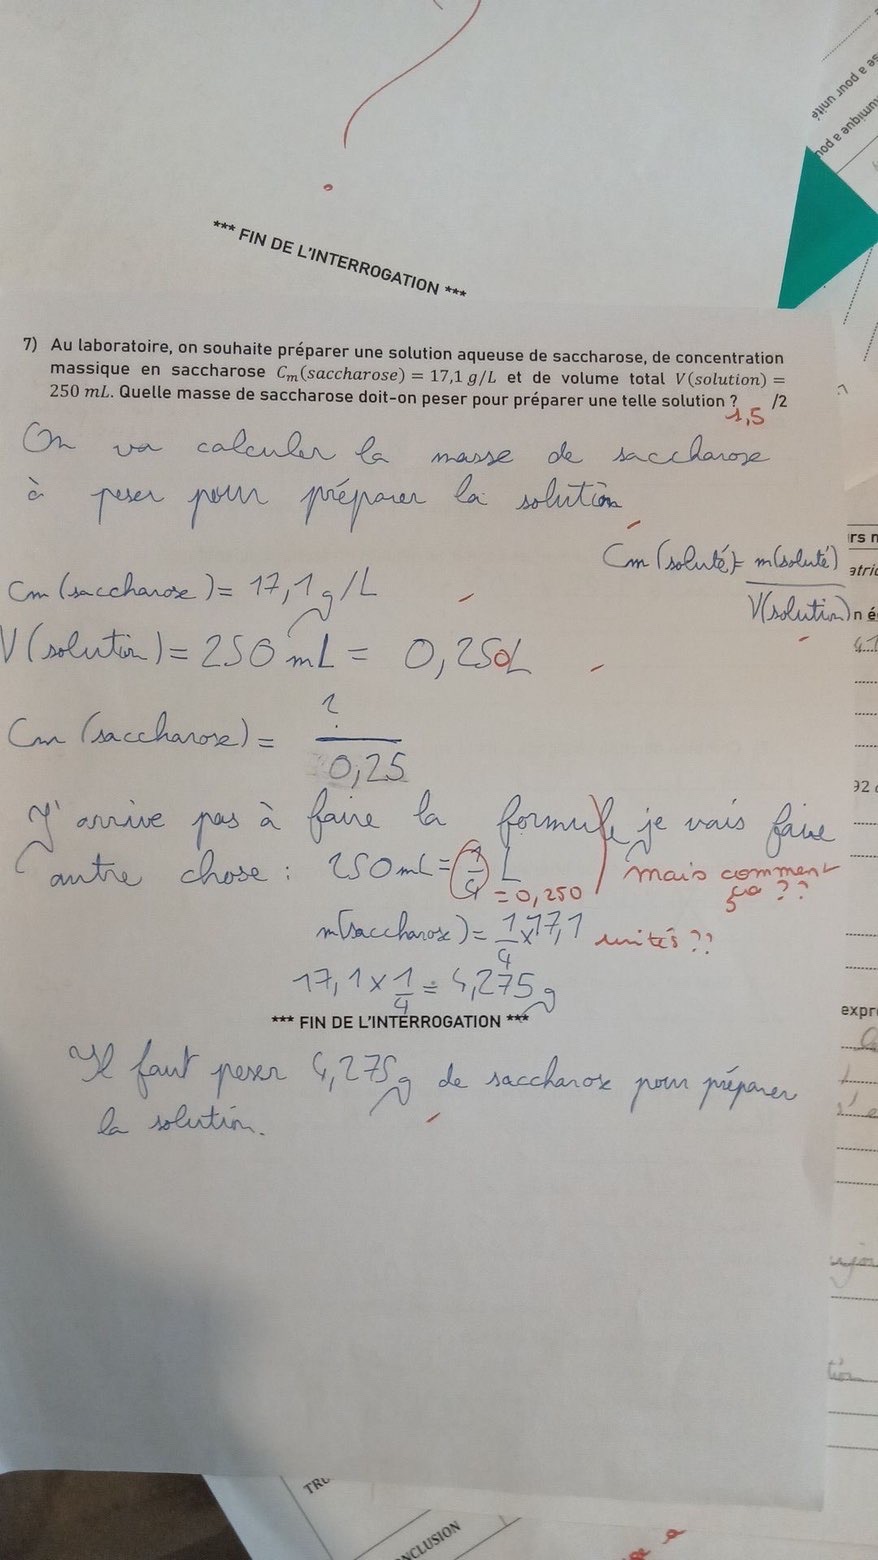 *** FIN DE L'INTERROGATION ***
7) Au laboratoire, on souhaite préparer une solution aqueuse de saccharose, de concentration
massique en saccharose Cm(saccharose) = 17,1 g/L et de volume total V(solution) =
250 mL. Quelle masse de saccharose doit-on peser pour préparer une telle solution ? /2
1,5
On va calculer la masse de saccharose
à peser pour préparer la solution
Cm (soluté) = m(soluté)
V(solution)
Cm (saccharose) = 17,1 g/L
V (solution) = 250 mL = 0,250L
Cm (saccharose) = ?
0,25
J'arrive pas à faire la formule je vais faire
autre chose : 250 mL = 1/4 L
= 0,250
mais comment
ça ??
m(saccharose) = 1/4 x 17,1 unités ??
17,1 x 1/4 = 4,275 g
*** FIN DE L'INTERROGATION ***
Il faut peser 4,275g de saccharose pour préparer
la solution.
se a pour unité
rs n
atric
n é
92
expr
tion
TRU
CONCLUSION